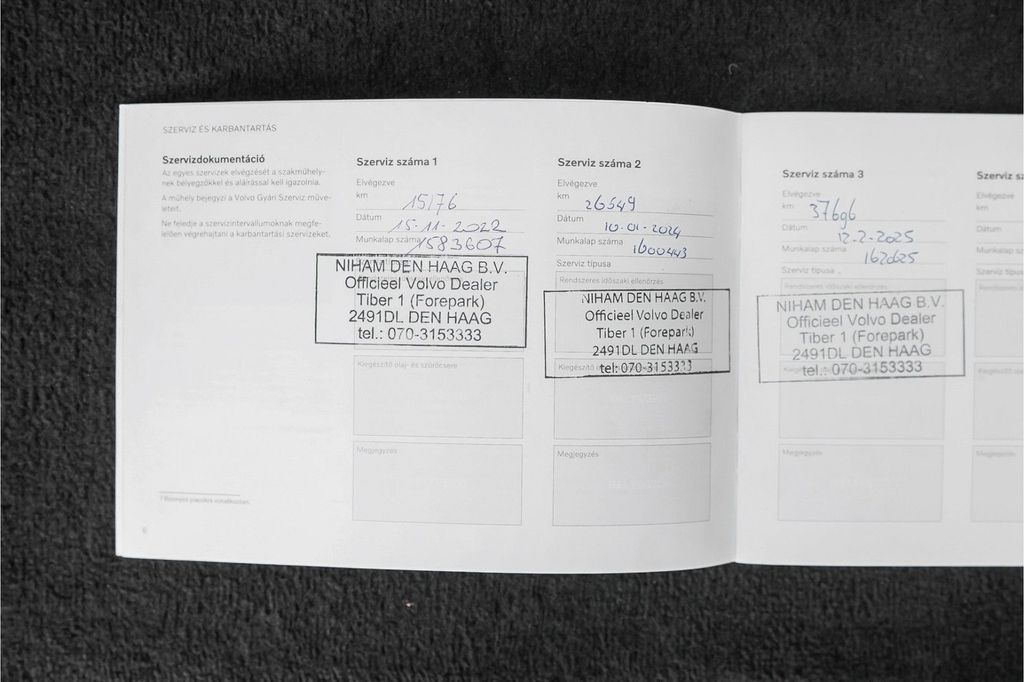 SZERVIZ ÉS KARBANTARTÁS
Szervizdokumentáció
Az egyes szervizek elvégzését a szakműhely-
nek bélyegzőkkel és aláírással kell igazolnia.
A műhely bejegyzi a Volvo Gyári Szerviz műve-
leteit.
Ne feledje a szervizintervallumoknak megfe-
lelően végrehajtani a karbantartási szervizeket.
Szerviz száma 1
Elvégezve
km 15176
Dátum 15-11-2022
Munkalap száma 1583607
NIHAM DEN HAAG B.V.
Officieel Volvo Dealer
Tiber 1 (Forepark)
2491DL DEN HAAG
tel.: 070-3153333
Kiegészítő olaj- és szűrőcsere
Megjegyzés
Szerviz száma 2
Elvégezve
km 26549
Dátum 10-01-2024
Munkalap száma 1600443
Szerviz típusa
Rendszeres időszaki ellenőrzés
NIHAM DEN HAAG B.V.
Officieel Volvo Dealer
Tiber 1 (Forepark)
2491DL DEN HAAG
tel: 070-3153333
Kiegészítő
Megjegyzés
Szerviz száma 3
Elvégezve
km 37696
Dátum 12-2-2025
Munkalap száma 162625
Szerviz típusa
Rendszeres időszaki ellenőrzés
NIHAM DEN HAAG B.V.
Officieel Volvo Dealer
Tiber 1 (Forepark)
2491DL DEN HAAG
tel.: 070-3153333
Megjegyzés
Szerviz
Elvégezve
km
Dátum
Munkalap
Szerviz